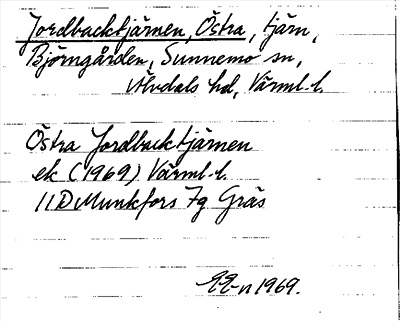 Jordbacktjärnen, Östra, tjärn,
Björngården, Sunnemo sn,
Älvdals hd, Värml. l.
Östra Jordbacktjärnen
ek (1969) Värml. l.
11D Munkfors 7g Gräs
1969.